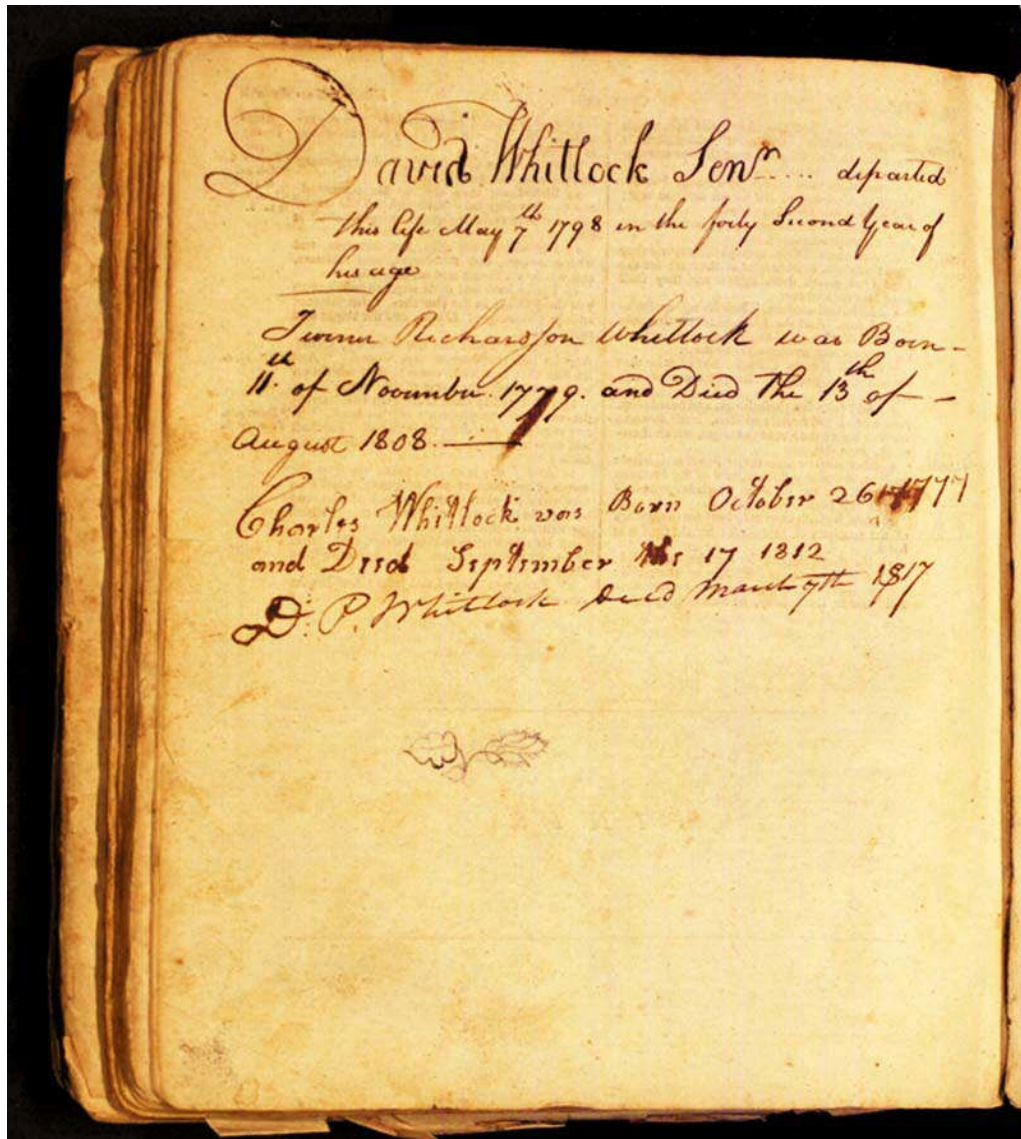 David Whitlock Senr.... departed
this life May 7th 1798 in the forty Second Year of
his age
Richardson Whitlock was Born -
11th of November. 1779. and Died The 13th of -
August 1808.
Charles Whitlock was Born October 26 1777
and Died September the 17 1812
D. P. Whitlock died March 7th 1817